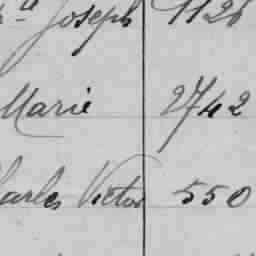 Joseph 1126
Marie 2742
Charles Victor 550